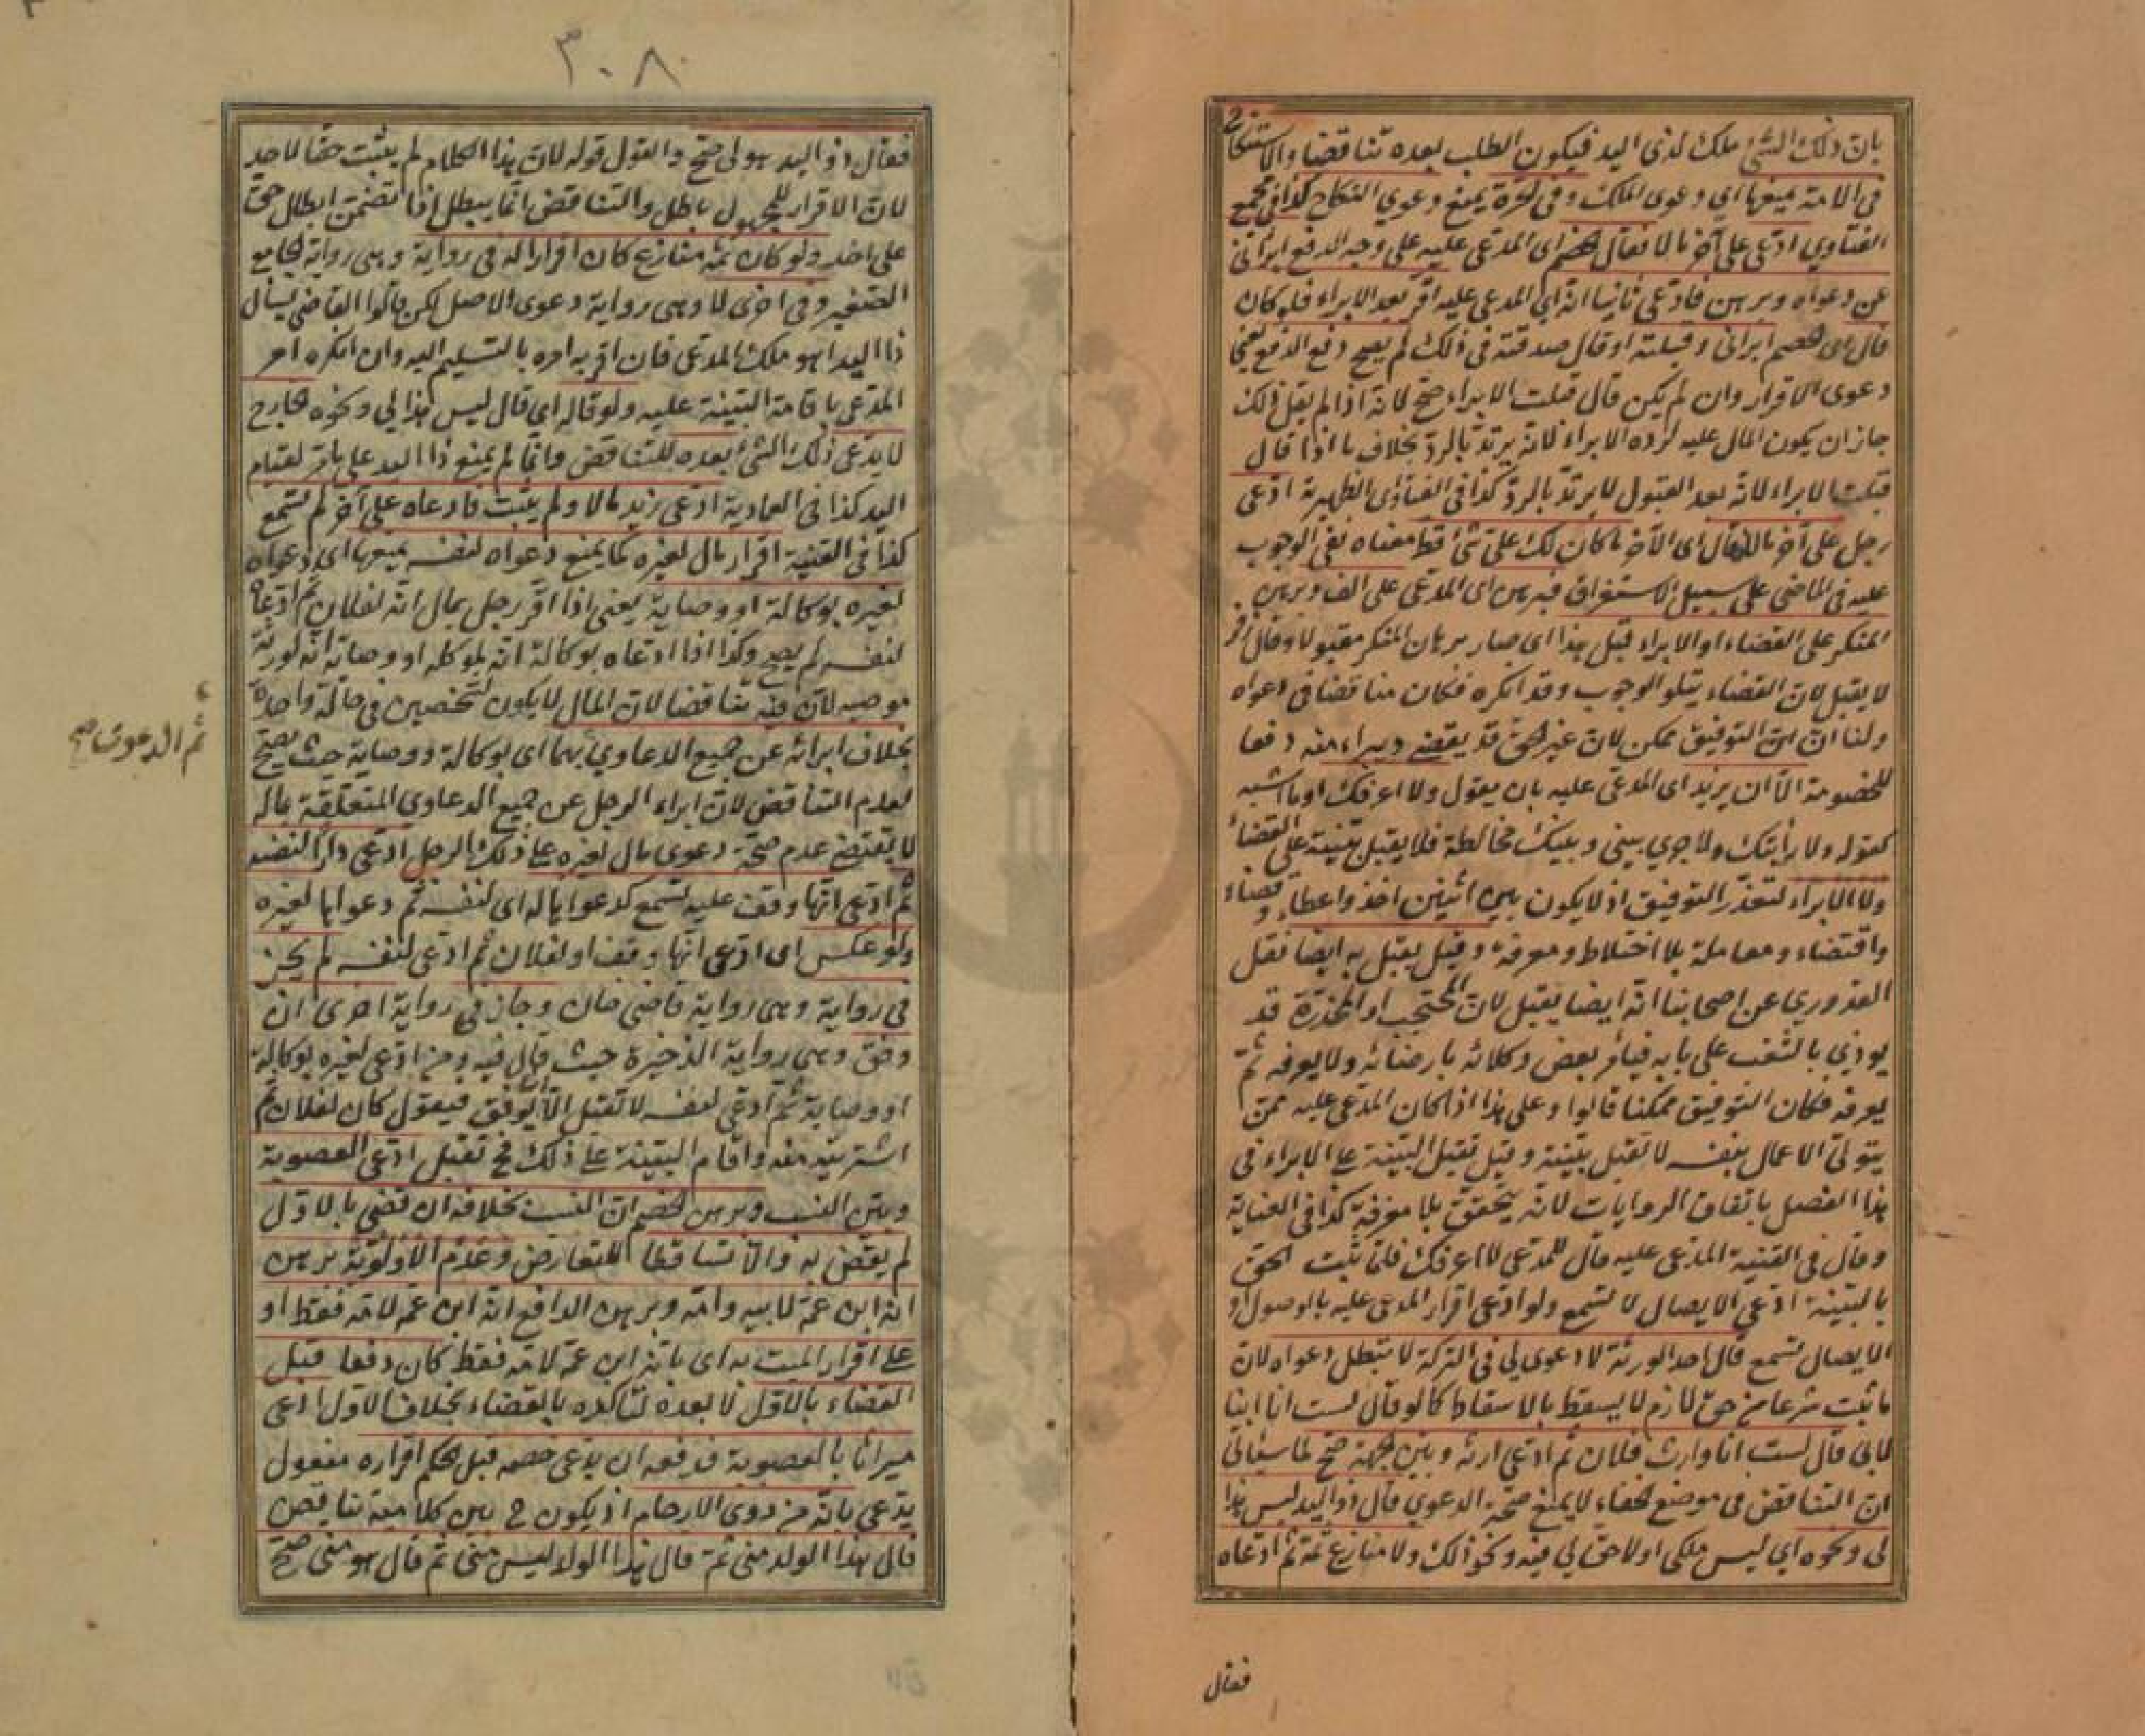 بان ذلك الشئ ملك لذى اليد فيكون الطلب بعده تناقضا والاستنكاح
فى الامة يمنعها اى دعوى الملك وفى الحرة يمنع دعوي النكاح كذا فى مجمع
الفتاوي ادعى على آخر مالا فقال الخصم اى المدعى عليه على وجه الدفع ابرأنى
عن دعواه وبرهن فادعى ثانيا انه اي المدعى عليه اقر بعد الابراء فلو كان
قال اى الخصم ابرانى وقبلته او قال صدقته فى ذلك لم يصح دفع الدفع يعنى
دعوى الاقرار وان لم يكن قال قبلت الابراء صح لانه اذا لم يقل ذلك
جاز ان يكون المال عليه لرده الابراء لانه يرتد بالرد بخلاف ما اذا قال
قبلت الابراء لانه بعد القبول لا يرتد بالرد كذا فى الفتاوى الظهيرية ادعى
رجل على آخر مالا فقال اى الآخر ما كان لك على شئ قط معناه نفى الوجوب
عليه فى الماضى على سبيل الاستغراق فبرهن اى المدعى على الف وبرهن
المنكر على القضاء او الابراء قبل هذا اى صار برهان المنكر مقبولا وقال زفر
لا يقبل لان القضاء يتلو الوجوب وقد انكره فكان مناقضا فى دعواه
ولنا ان التوفيق ممكن لان غير الحق قد يقضى ويبراء منه دفعا
للخصومة الا ان يزيد اى المدعى عليه بان يقول ولا اعرفك او ما اشبه
كقوله ولا رأيتك ولا جري بينى وبينك مخالطة فلا يقبل بينته على القضاء
ولا الابراء لتعذر التوفيق اذ لا يكون بين اثنين اخذ واعطاء وقضاء
واقتضاء ومعاملة بلا اختلاط ومعرفة وقيل يقبل به ايضا نقل
القدوري عن اصحابنا انه ايضا يقبل لان المحتجب او المخدرة قد
يوذي بالشغب على بابه فيامر بعض وكلائه بارضائه ولا يعرفه ثم
يعرفه فكان التوفيق ممكنا قالوا وعلى هذا اذا كان المدعى عليه ممن
يتولى الاعمال بنفسه لا تقبل بينته وقيل تقبل البينة على الابراء فى
هذا الفصل باتفاق الروايات لانه يتحقق بلا معرفة كذا فى العناية
وقال فى القنية المدعى عليه قال للمدعى لا اعرفك فلما ثبت الحق
بالبينة ادعى الايصال لا تسمع ولو ادعى اقرار المدعى عليه بالوصول او
الايصال تسمع قال احد الورثة لا دعوى لى فى التركة لا تبطل دعواه لان
ما ثبت شرعا من حق لازم لا يسقط بالاسقاط كما لو قال لست انا ابنا
لابى قال لست انا وارث فلان ثم ادعى ارثه وبين الجهة صح لما سيأتى
ان التناقض فى موضع الخفاء لا يمنع صحة الدعوي قال ذو اليد ليس هذا
لى ونحوه اي ليس ملكى او لا حق لي فيه ونحو ذلك ولا منازع ثمة ثم ادعاه
فقال
٣٠٨
فقال ذو اليد هو لى صح والقول قوله لان هذا الكلام لم يثبت حقا لاحد
لان الاقرار للمجهول باطل والتناقض انما يبطل اذا تضمن ابطال حق
على احد ولو كان ثمة منازع كان اقرارا له فى رواية وهى رواية الجامع
الصغير وفى اخرى لا وهى رواية دعوى الاصل لكن قالوا القاضى يسأل
ذا اليد اهو ملك المدعى فان اقر به امره بالتسليم اليه وان انكره امر
المدعى باقامة البينة عليه ولو قاله اى قال ليس هذا لى ونحوه خارج
لا يدعى ذلك الشئ بعده للتناقض وانما لم يمنع ذا اليد على ما مر لقيام
اليد كذا فى العمادية ادعى زيد مالا ولم يثبت فادعاه على آخر لم تسمع
كذا فى القنية اقرار بمال لغيره كما يمنع دعواه لنفسه يمنعها اى دعواه
لغيره بوكالة او وصاية يعنى اذا اقر رجل بمال انه لفلان ثم ادعاه
لنفسه لم يصح وكذا اذا ادعاه بوكالة انه لموكله او وصاية انه لورثة
موصيه لان فيه تناقضا لان المال لا يكون لشخصين فى حالة واحدة
بخلاف ابرائه عن جميع الدعاوي بهما اى بوكالة ووصاية حيث يصح
لعدم التناقض لان ابراء الرجل عن جميع الدعاوى المتعلقة بماله
لا يقتضى عدم صحة دعوى مال لغيره على ذلك الرجل ادعى دارا لنفسه
ثم ادعى انها وقف عليه تسمع كدعواها له اى لنفسه ثم دعواها لغيره
ولو عكس اى ادعى انها وقف او لفلان ثم ادعى لنفسه لم يجز
فى رواية وهى رواية قاضى خان وجاز فى رواية اخرى ان
وفق وهى رواية الذخيرة حيث قال فيه ومن ادعى لغيره بوكالة
او وصاية ثم ادعى لنفسه لا تقبل الا ان يوفق فيقول كان لفلان ثم
اشتريته منه واقام البينة على ذلك فح تقبل ادعى العصوبة
وبين النسب وبرهن الخصم ان النسب بخلافه ان قضى بالاول
لم يقض به والا تساقطا للتعارض وعدم الاولوية برهن
انه ابن عمه لابيه وامه وبرهن الدافع انه ابن عمه لامه فقط او
على اقرار الميت به اى بانه ابن عمه لامه فقط كان دفعا قبل
القضاء بالاول لا بعده لتاكده بالقضاء بخلاف الاول ادعى
ميراثا بالعصوبة فدفعه ان يدعى خصمه قبل الحكم اقراره مفعول
يدعى بانه من ذوى الارحام اذ يكون ح بين كلاميه تناقض
قال هذا الولد منى ثمة قال هذا الولد ليس منى ثم قال هو منى صح
ثم الدعوى صح